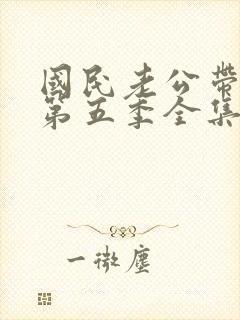 國民老公帶
第五季全集
一微塵